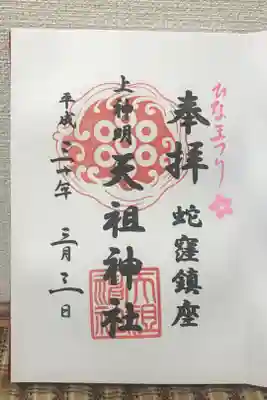 ひなまつり
奉拝
蛇窪鎮座
上神明
天祖神社
平成三十年
三月三日